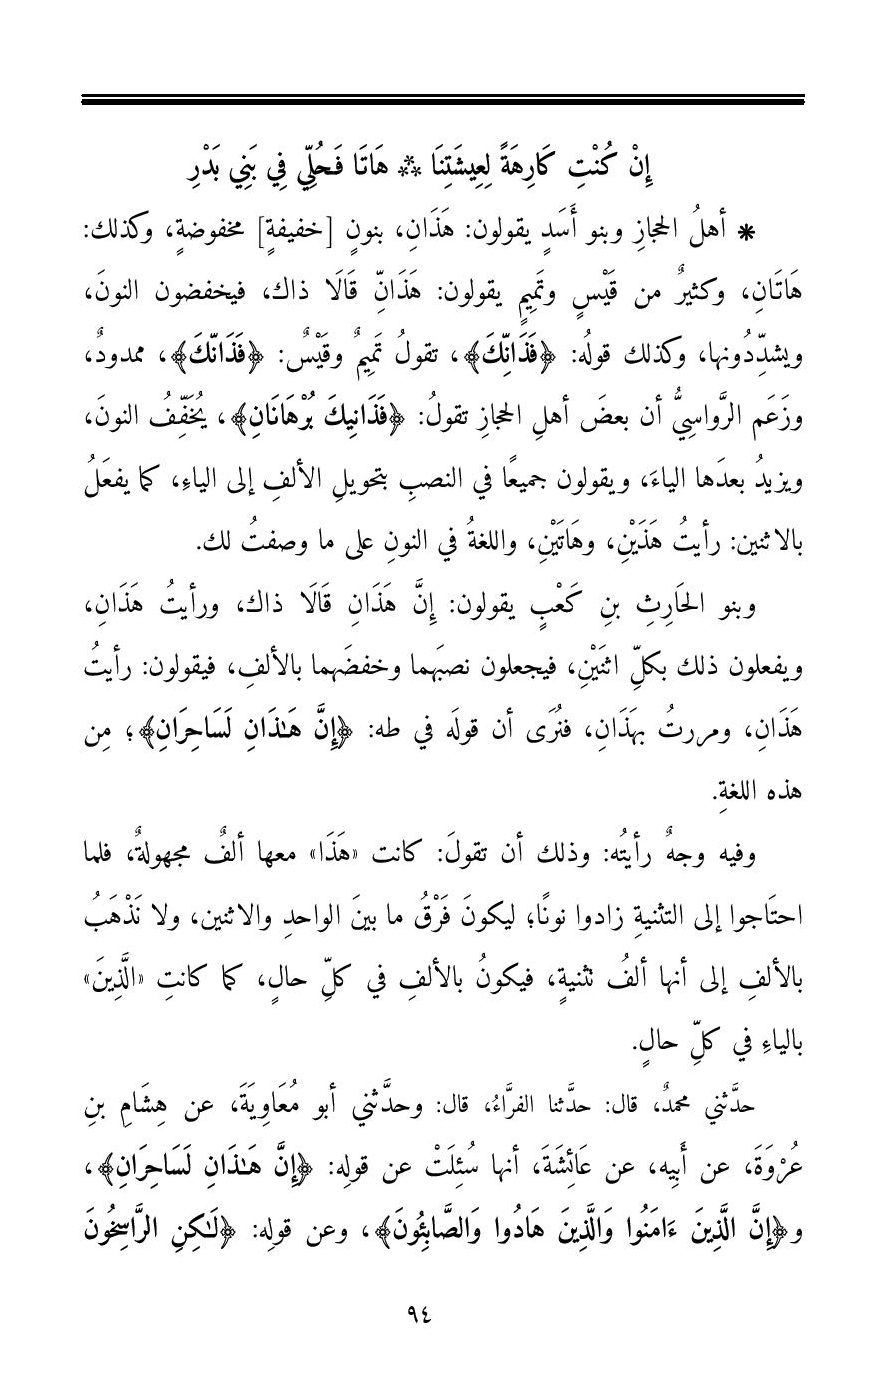 إِنْ كُنْتِ كَارِهَةً لِعِيشَتِنَا ⁂ هَاتَا فَحُلِّي فِي بَنِي بَدْرِ
* أهلُ الحجازِ وبنو أَسَدٍ يقولون: هَذَانِ، بنونٍ [خفيفةٍ] مخفوضةٍ، وكذلك:
هَاتَانِ، وكثيرٌ من قَيْسٍ وتَمِيمٍ يقولون: هَذَانِّ قَالَا ذاك، فيخفضون النونَ،
ويشدِّدُونها، وكذلك قولُه: ﴿فَذَانِّكَ﴾، تقولُ تَمِيمٌ وقَيْسٌ: ﴿فَذَانّكَ﴾، ممدودٌ،
وزَعَم الرَّواسِيُّ أن بعضَ أهلِ الحجازِ تقولُ: ﴿فَذَانِيكَ بُرْهَانَانِ﴾، يُخَفِّفُ النونَ،
ويزيدُ بعدَها الياءَ، ويقولون جميعًا في النصبِ بتحويلِ الألفِ إلى الياءِ، كما يفعَلُ
بالاثنين: رأيتُ هَذَيْنِ، وهَاتَيْنِ، واللغةُ في النونِ على ما وصفتُ لك.
وبنو الحَارِثِ بنِ كَعْبٍ يقولون: إِنَّ هَذَانِ قَالَا ذاك، ورأيتُ هَذَانِ،
ويفعلون ذلك بكلِّ اثنَيْنِ، فيجعلون نصبَهما وخفضَهما بالألفِ، فيقولون: رأيتُ
هَذَانِ، ومررتُ بهَذَانِ، فنُرَى أن قولَه في طه: ﴿إِنَّ هَـٰذَانِ لَسَاحِرَانِ﴾؛ مِن
هذه اللغةِ.
وفيه وجهٌ رأيتُه: وذلك أن تقولَ: كانت «هَذَا» معها ألفٌ مجهولةٌ، فلما
احتَاجوا إلى التثنيةِ زادوا نونًا؛ ليكونَ فَرْقُ ما بينَ الواحدِ والاثنين، ولا نَذْهَبُ
بالألفِ إلى أنها ألفُ تثنيةٍ، فيكونُ بالألفِ في كلِّ حالٍ، كما كانتِ «الَّذِينَ»
بالياءِ في كلِّ حالٍ.
حدَّثني محمدٌ، قال: حدَّثنا الفرَّاءُ، قال: وحدَّثني أبو مُعَاوِيَةَ، عن هِشَامِ بنِ
عُرْوَةَ، عن أَبِيه، عن عَائِشَةَ، أنها سُئِلَتْ عن قولِه: ﴿إِنَّ هَـٰذَانِ لَسَاحِرَانِ﴾،
و﴿إِنَّ الَّذِينَ ءَامَنُوا وَالَّذِينَ هَادُوا وَالصَّابِئُونَ﴾، وعن قولِه: ﴿لَـٰكِنِ الرَّاسِخُونَ
٩٤